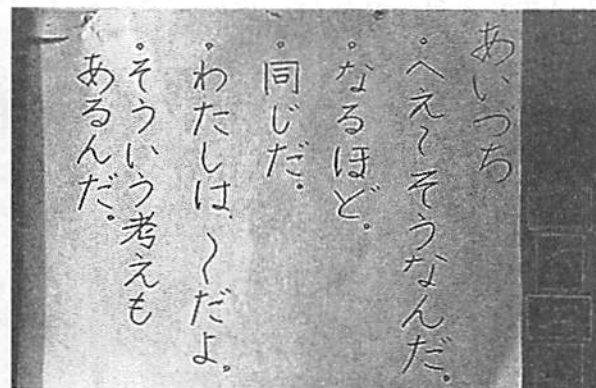 あいづち
・へえ〜そうなんだ。
・なるほど。
・同じだ。
・わたしは、〜だよ。
・そういう考えも
あるんだ。